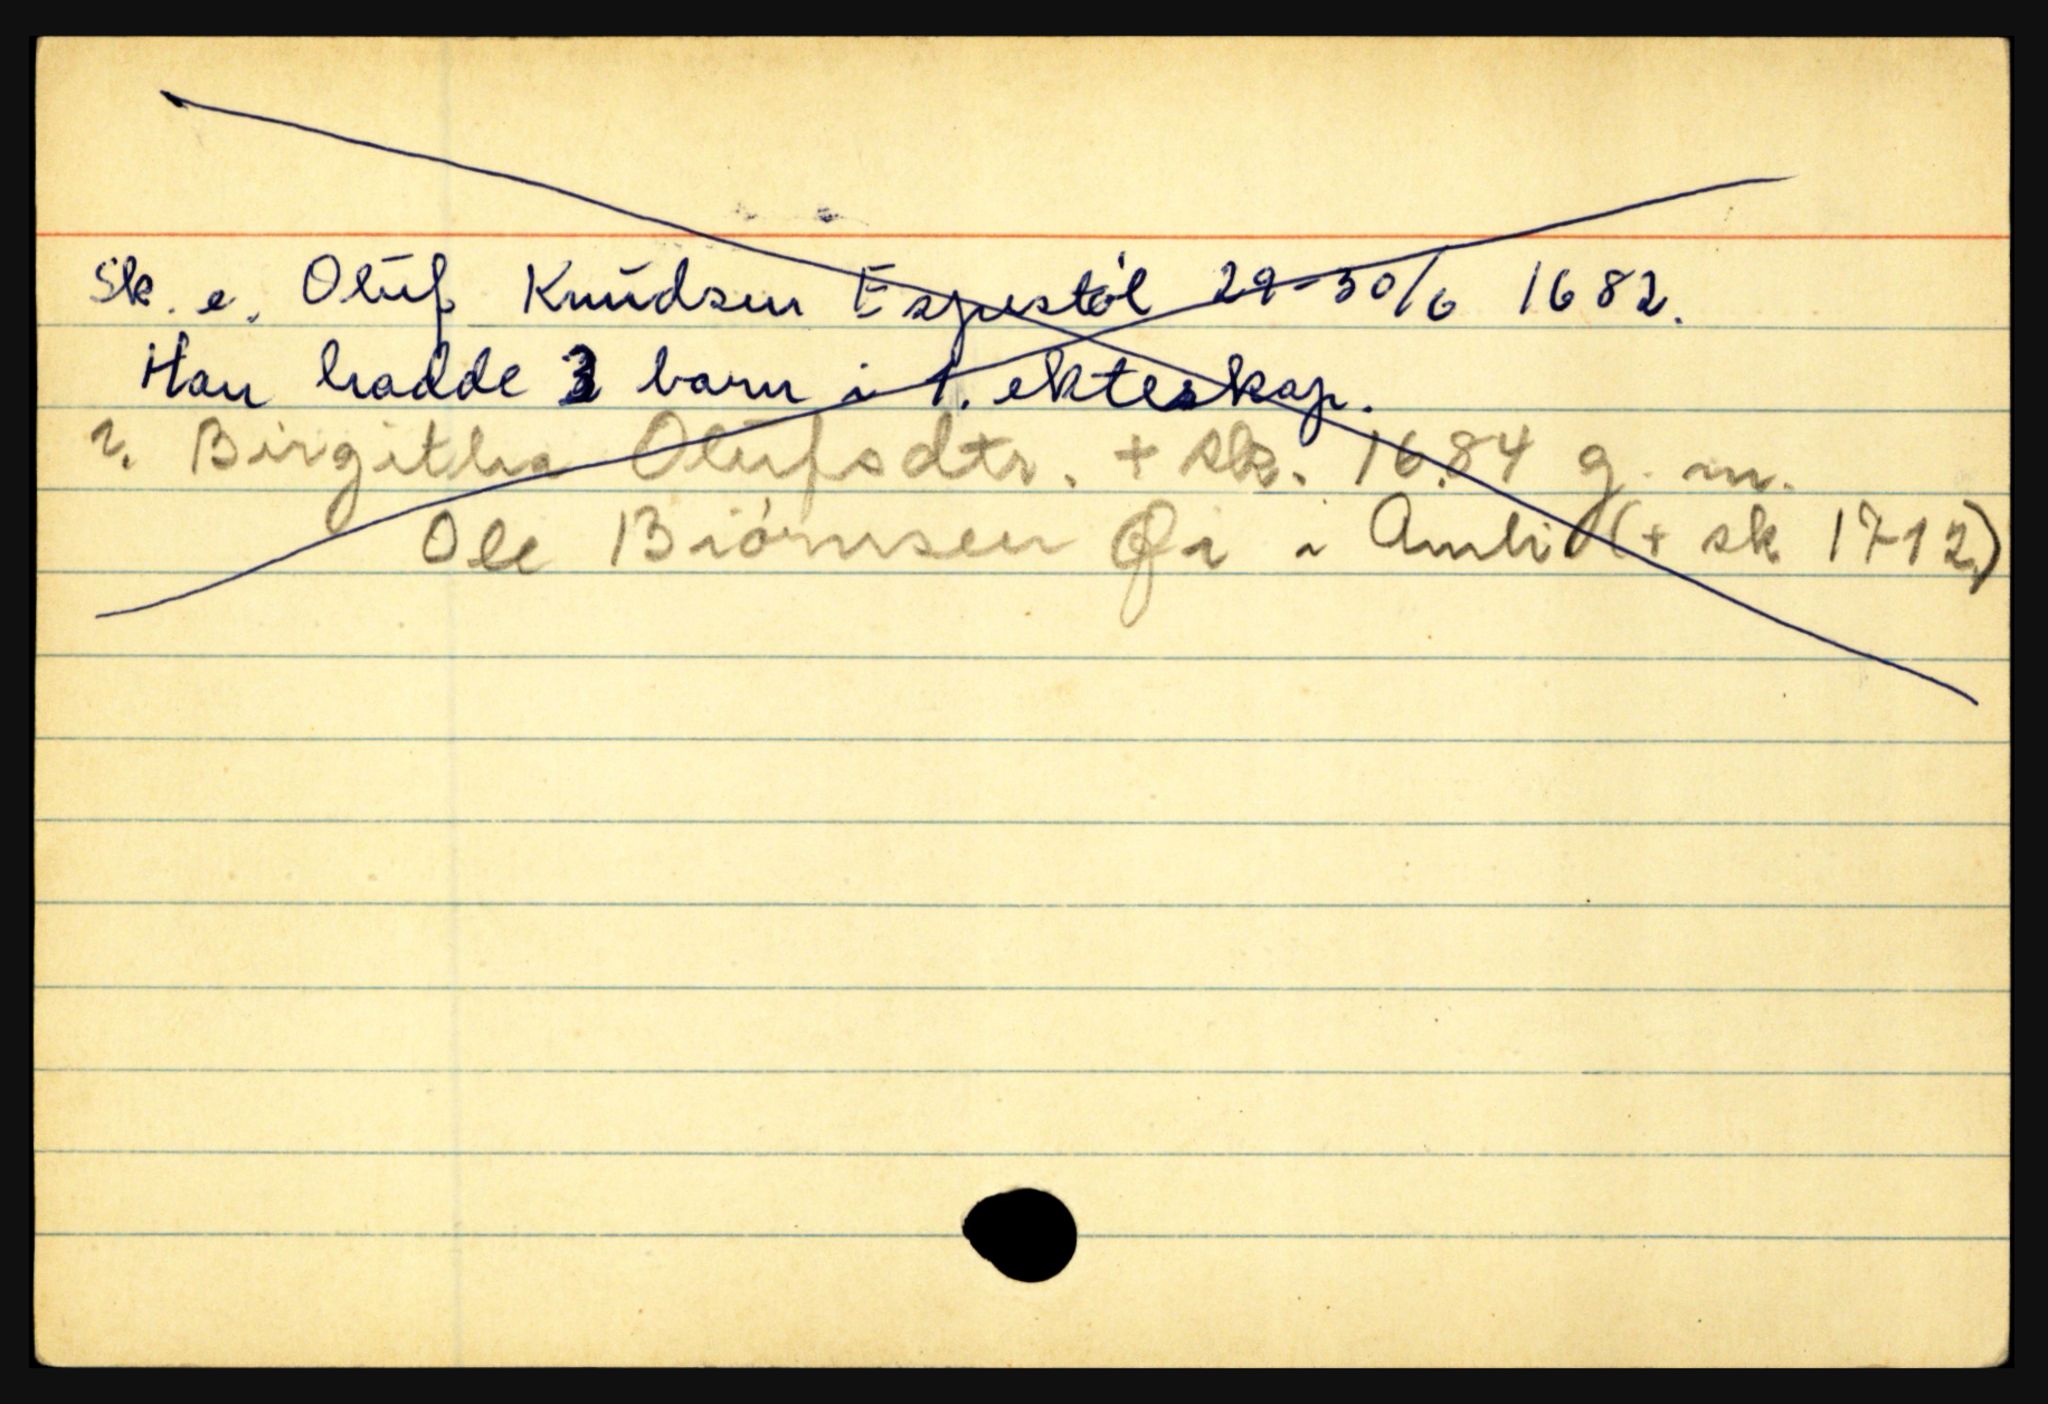 Sk. e. Oluf Knudsen Espestøl 29-30/6 1682.
Han hadde 3 barn i 1. ekteskap.
2. Birgitha Olufsdtr. + sk. 1684 g. m.
Ole Biørnsen Øi i Amli (+ sk 1712)